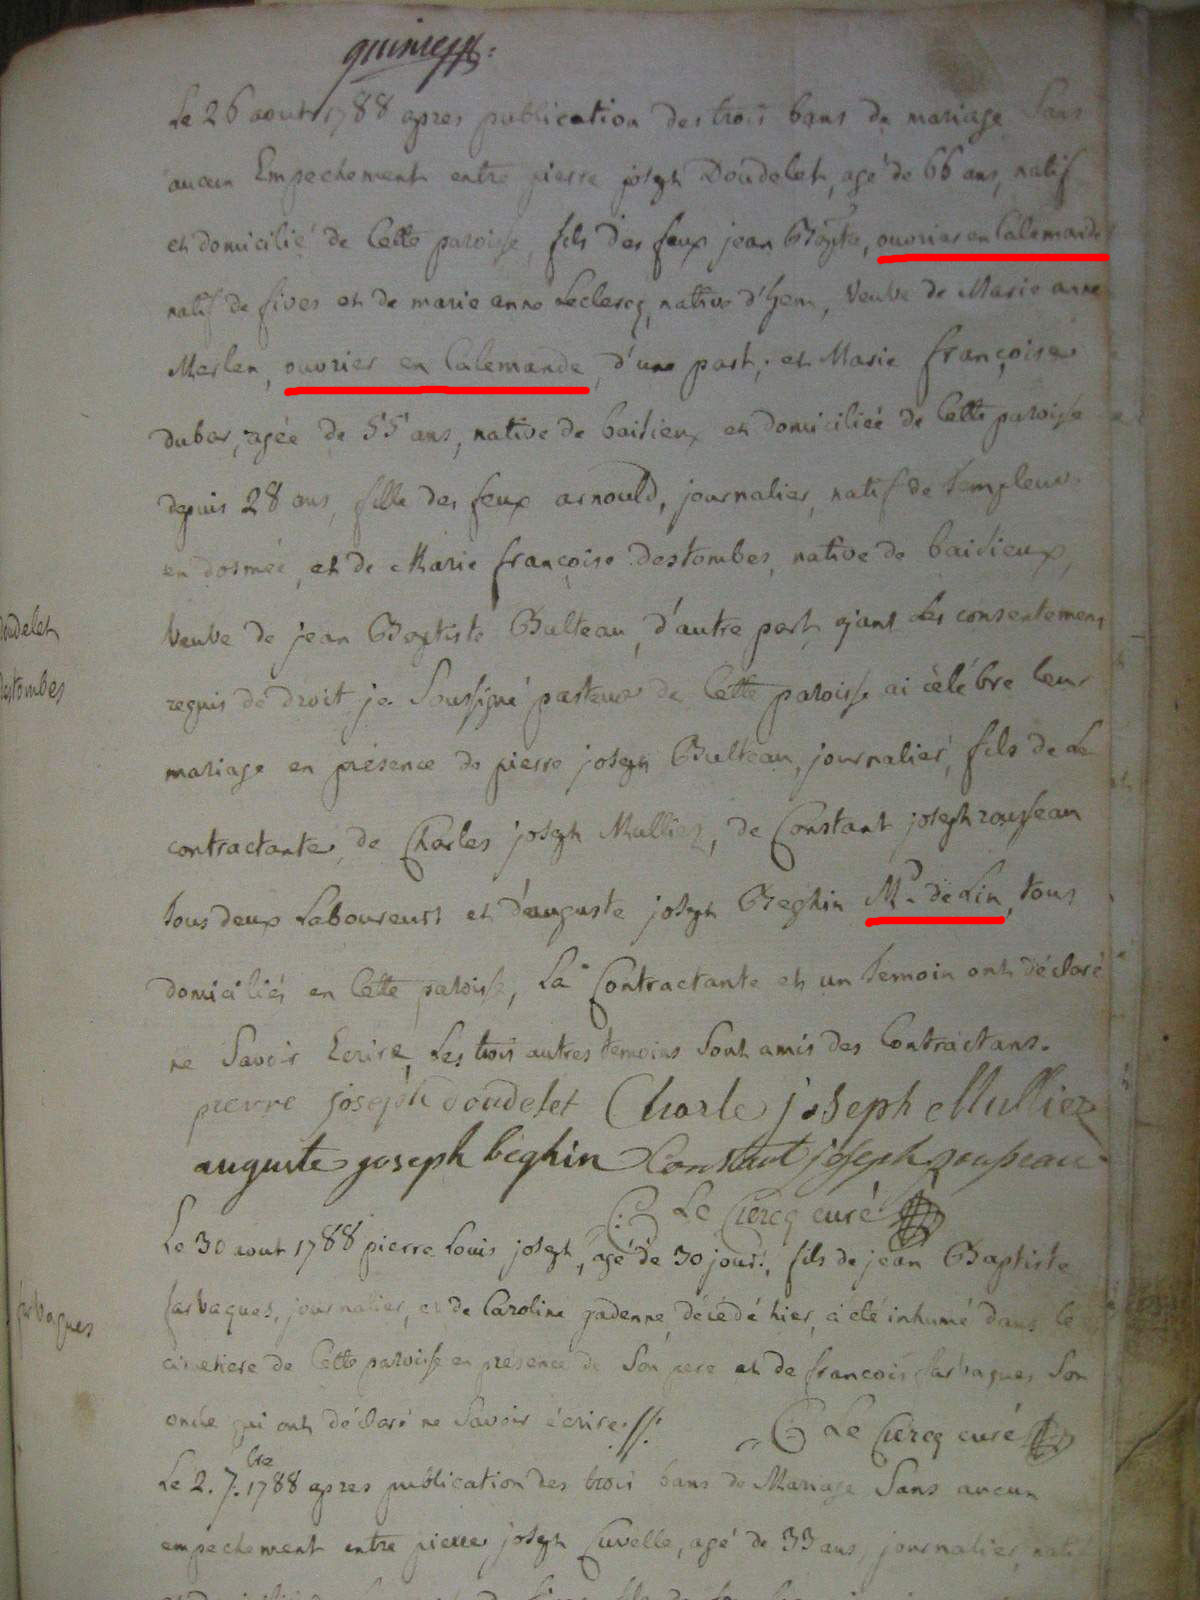 Le 26 aout 1788 apres publication des trois bans de mariage Sans
aucun Empechement entre pierre joseph Doudelet, agé de 66 ans, natif
et domicilié de Cette paroisse, fils des feux jean Bapte, ouvrier en Calemande
natif de fives et de marie anne Leclercq, native d'hem, Veuve de Marie anne
Merlen, ouvrier en Calemande, d'une part; et Marie françoise
dubar, agée de 55 ans, native de baisieux et domiciliée de Cette paroisse
depuis 28 ans, fille des feux arnould, journalier, natif de Templeuve
en dosmée, et de Marie françoise Destombes, native de baisieux,
Veuve de jean Baptiste Bulteau, d'autre part, ajant les consentemens
requis de droit je Soussigné pasteur de Cette paroisse ai célébré leur
mariage en présence de pierre joseph Bulteau, journalier, fils de La
contractante, de Charles joseph Mulliez, de Constant joseph rousseau
tous deux Laboureurs et d'auguste joseph Beghin Md. de Lin, tous
domiciliés en Cette paroisse, La Contractante et un temoin ont déclaré
ne Savoir Ecrire, Les trois autres temoins Sont amis des Contractans.
pierre joseph doudelet Charle joseph Mulliez
auguste joseph béghin Constant joseph rousseau
Le Clercq curé
Doudelet
Destombes
Le 30 aout 1788 pierre Louis joseph, agé de 30 jours, fils de jean Baptiste
farvaques, journalier, et de Caroline gadenne, décédé hier, a été inhumé dans le
cimetiere de Cette paroisse en présence de Son pere et de françois farvaques Son
oncle qui ont déclaré ne Savoir écrire.
Le Clercq curé
farvaques
Le 2. 7.bre 1788 apres publication des trois bans de Mariage Sans aucun
empechement entre pierre joseph Cuvelle, agé de 33 ans, journalier, natif